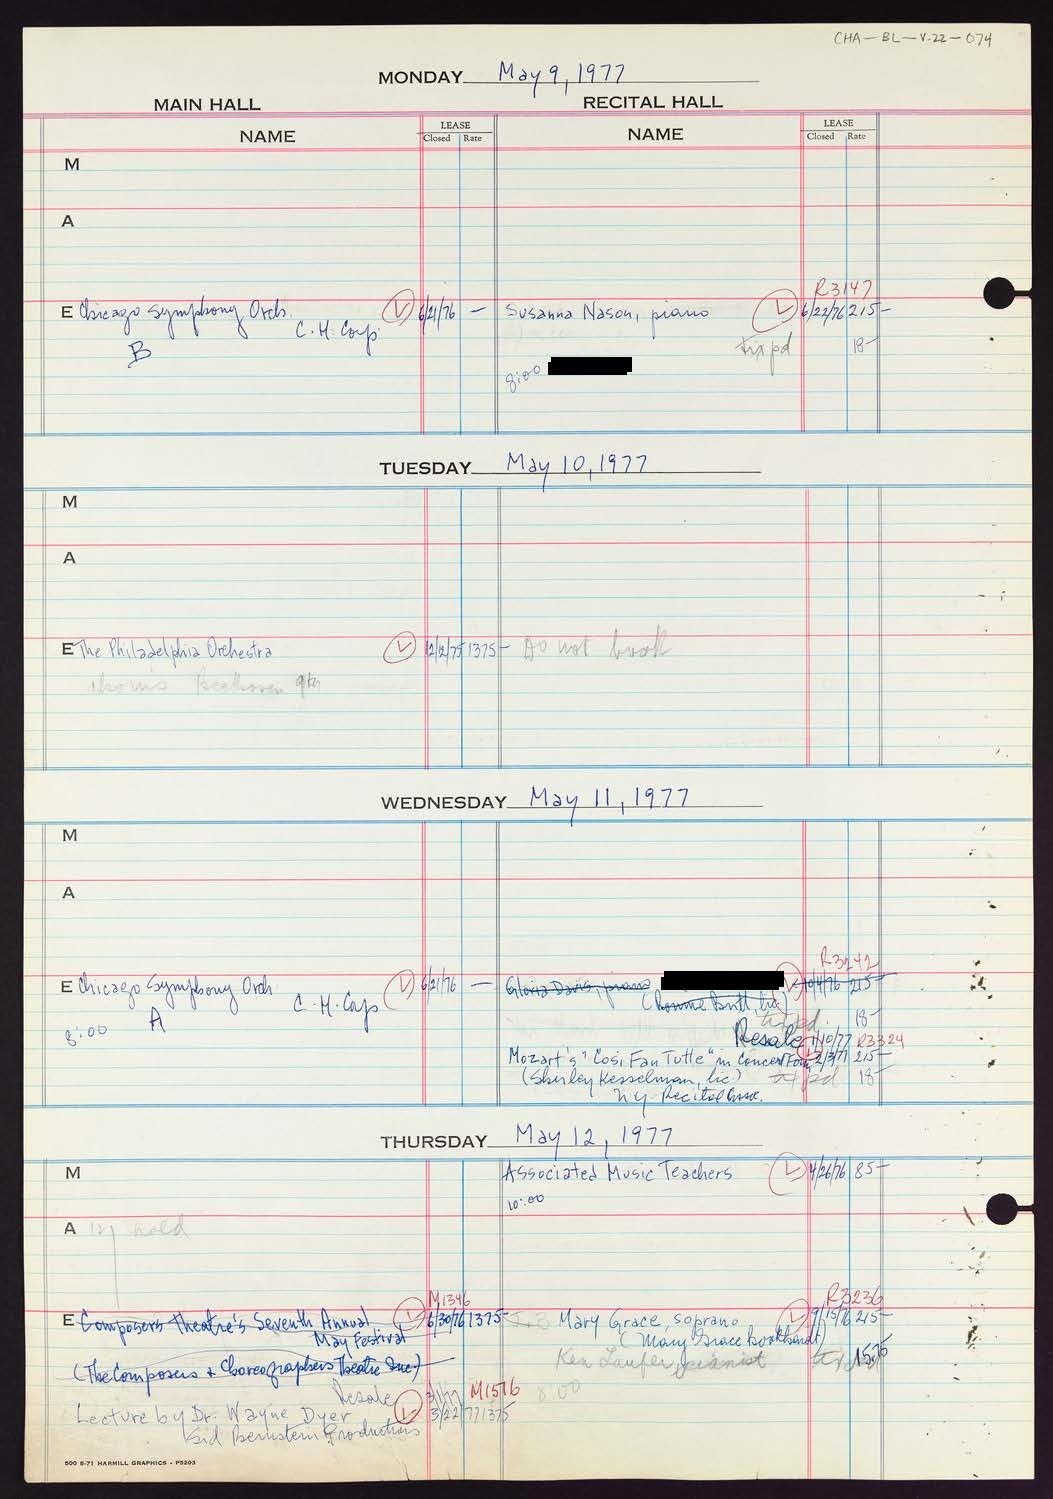 CHA-BL-V.22-074
MONDAY May 9, 1977
MAIN HALL RECITAL HALL
NAME LEASE Closed Rate NAME LEASE Closed Rate
M
A
R3147
E Chicago Symphony Orch. L 6/21/76 — Susanna Nason, piano L 6/22/76 215-
C.H. Corp
B tix pd 18-
8:00
TUESDAY May 10, 1977
M
A
E The Philadelphia Orchestra L 12/12/75 1375- Do not book
Beethoven 9th
WEDNESDAY May 11, 1977
M
A
R3242
E Chicago Symphony Orch L 6/21/76 — Gloria Davis, piano L 10/4/76 215-
C.H. Corp
8:00 A tix pd. 18-
Resale 1/10/77 R3324
Mozart's "Cosi Fan Tutte" in Concert Form L 2/3/77 215-
(Shirley Kesselman, lic) tix pd 18-
NY Recital Assoc.
THURSDAY May 12, 1977
M Associated Music Teachers L 4/26/76 85-
10:00
A hold
M1346 R3236
E Composers Theatre's Seventh Annual L 6/30/76 1375- Mary Grace, soprano L 9/15/76 215-
May Festival (Mary Grace
(The Composers + Choreographers Theatre Inc) Ken Laufer, pianist
Resale M1516 8:00
Lecture by Dr. Wayne Dyer L 3/22/77 1375
Sid Bernstein Productions
500 8-71 HARMILL GRAPHICS - P5203